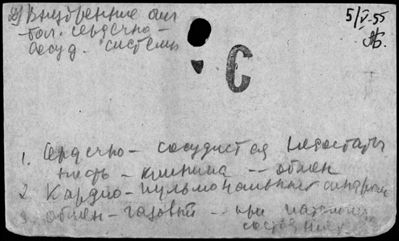 2) Внутренние
бол. сердечно-
сосуд. системы
5/V-55
Є
1. Сердечно-сосудистая недостаточ
ность - клиника -- обмен
2 Кардио-пульмональный синдром
3 обмен-газовый -- при патологич
состояниях